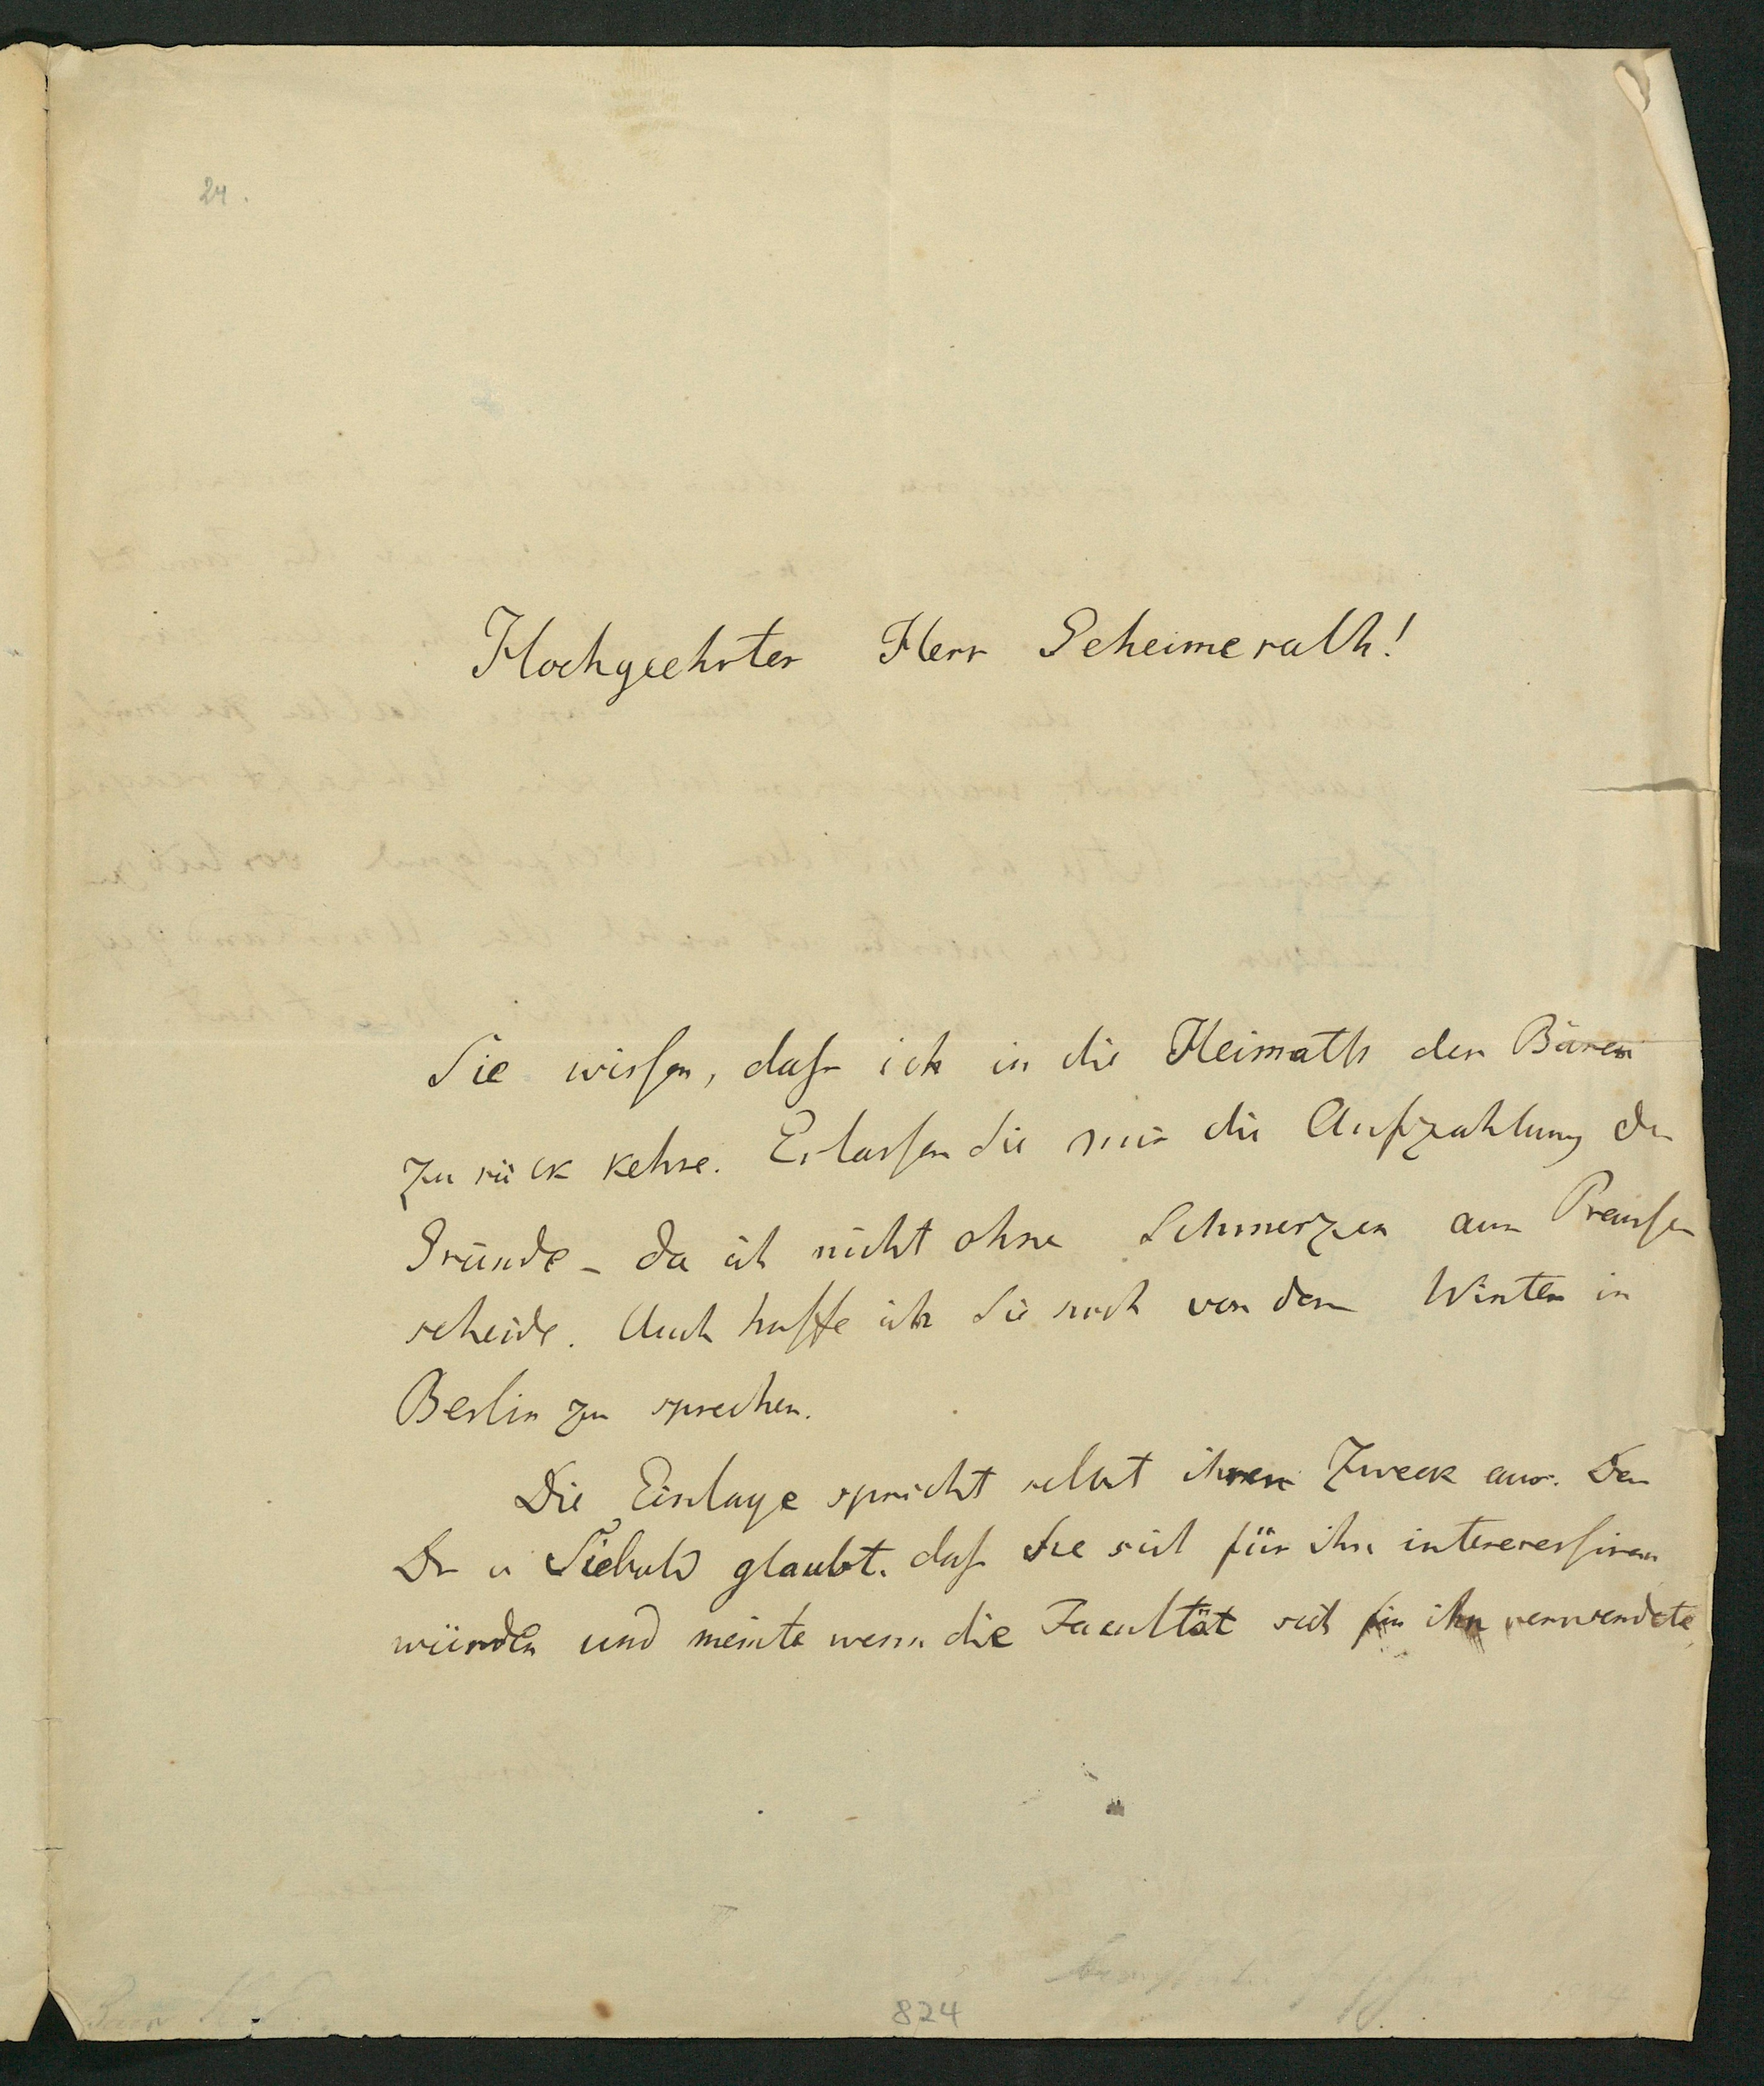 24.
Hochgeehrter Herr Geheimerath!
Sie wissen, daß ich in die Heimath der Bären
zurück kehre. Erlassen Sie mir die Aufzahlung der
Gründe – da ich nicht ohne Schmerzen aus Preussen
scheide. Auch hoffe ich Sie noch vor dem Winter in
Berlin zu sprechen.
Die Einlage spricht selbst ihren Zweck aus. Der
Dr v Siebold glaubt, daß Sie sich für ihn interessiren
würden und meinte wenn die Facultät sich für ihn verwendete,
824